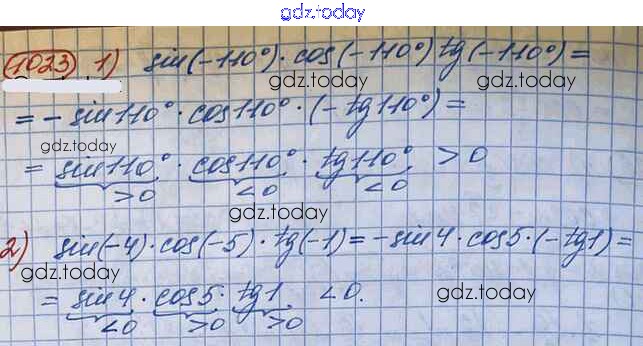 gdz.today
1023 1) sin(-110°)·cos(-110°) tg(-110°) =
gdz.today
= -sin110°·cos110°·(-tg110°) =
gdz.today gdz.today
= sin110°·cos110°·tg110° > 0
>0 <0 <0
gdz.today
2) sin(-4)·cos(-5)·tg(-1) = -sin4·cos5·(-tg1) =
gdz.today
= sin4·cos5·tg1 < 0.
gdz.today
<0 >0 >0